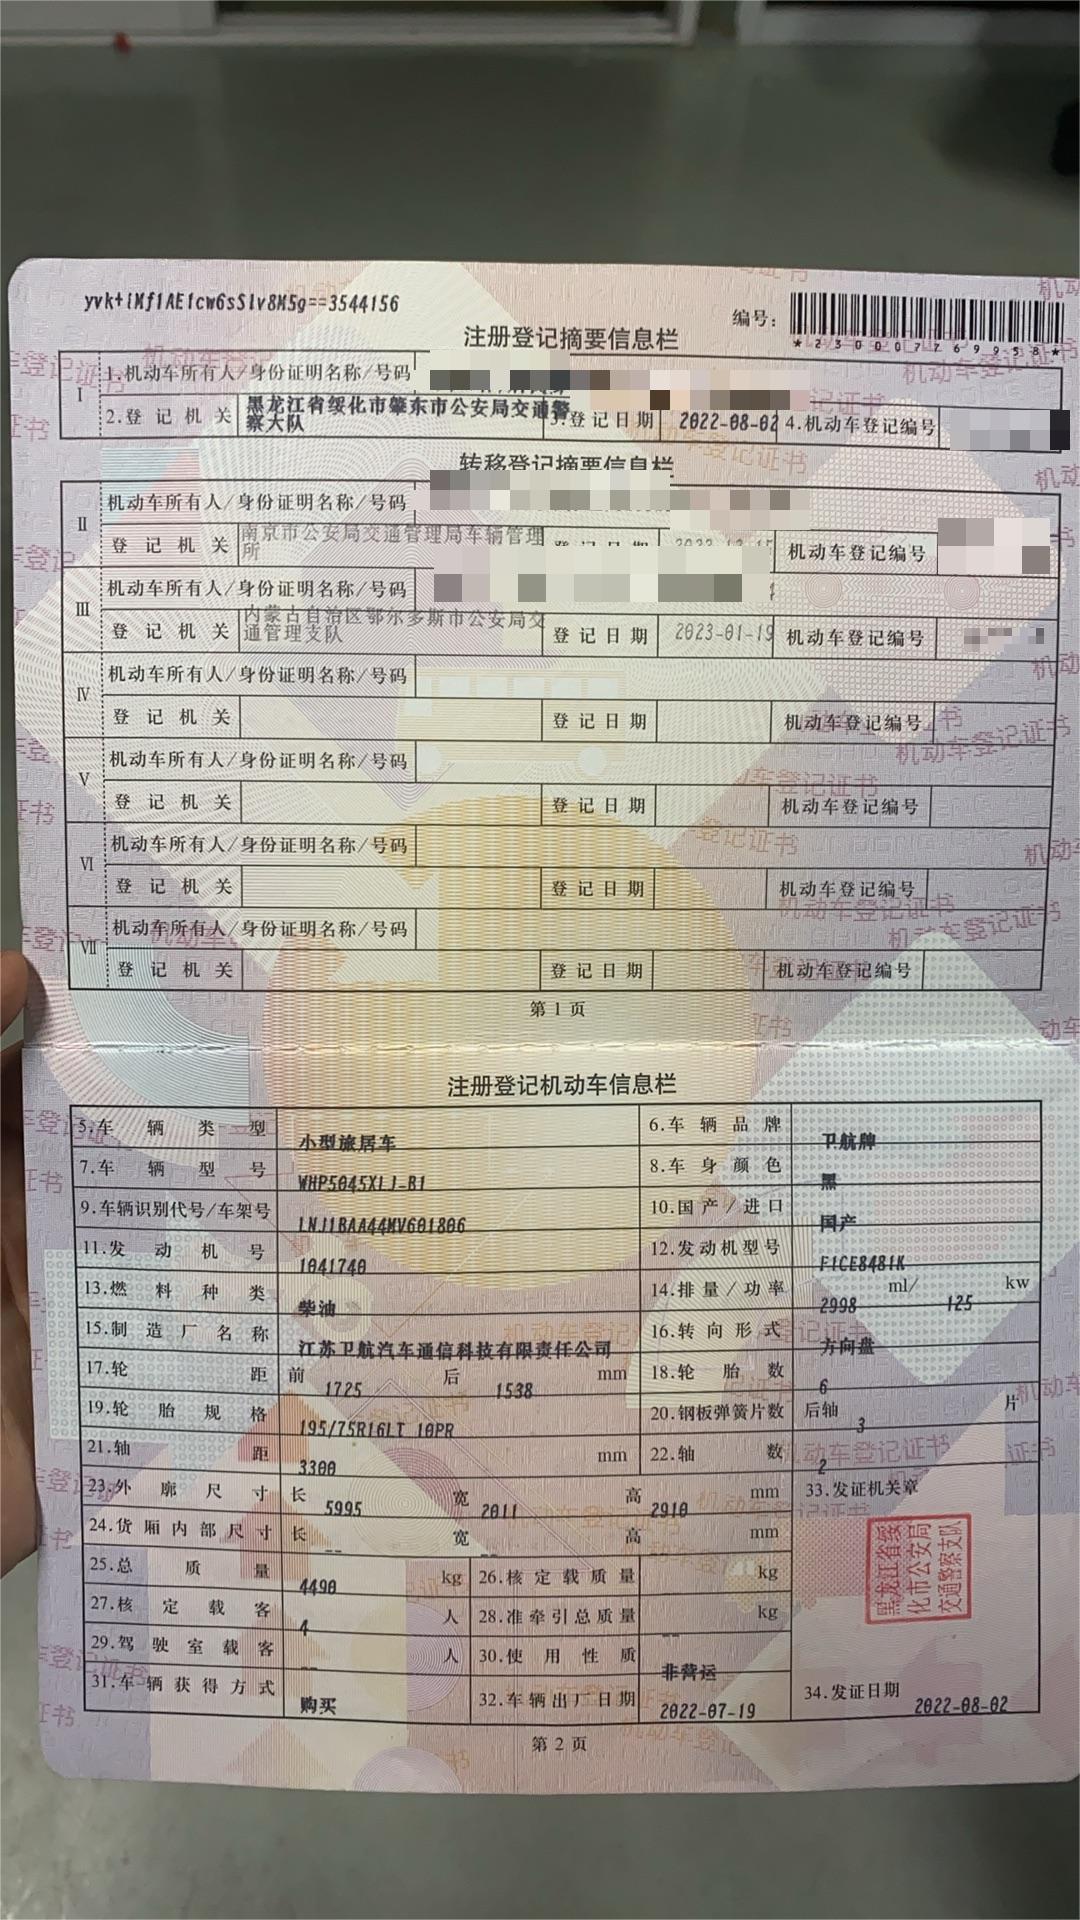 yvk+iMf1AE1cw6sSlv8M5g==3544156
编号：
*230007769958*
注册登记摘要信息栏
Ⅰ
1.机动车所有人/身份证明名称/号码
2.登记机关 黑龙江省绥化市肇东市公安局交通警察大队 3.登记日期 2022-08-02 4.机动车登记编号
转移登记摘要信息栏
Ⅱ
机动车所有人/身份证明名称/号码
登记机关 南京市公安局交通管理局车辆管理所 登记日期 机动车登记编号
Ⅲ
机动车所有人/身份证明名称/号码
登记机关 内蒙古自治区鄂尔多斯市公安局交通管理支队 登记日期 2023-01-19 机动车登记编号
Ⅳ
机动车所有人/身份证明名称/号码
登记机关 登记日期 机动车登记编号
Ⅴ
机动车所有人/身份证明名称/号码
登记机关 登记日期 机动车登记编号
Ⅵ
机动车所有人/身份证明名称/号码
登记机关 登记日期 机动车登记编号
Ⅶ
机动车所有人/身份证明名称/号码
登记机关 登记日期 机动车登记编号
第1页
注册登记机动车信息栏
5.车辆类型 小型旅居车 6.车辆品牌 卫航牌
7.车辆型号 WHP5045XLJ-B1 8.车身颜色 黑
9.车辆识别代号/车架号 LNJ1BAA44MV601806 10.国产/进口 国产
11.发动机号 1041740 12.发动机型号 F1CE8481K
13.燃料种类 柴油 14.排量/功率 2998 ml/ 125 kw
15.制造厂名称 江苏卫航汽车通信科技有限责任公司 16.转向形式 方向盘
17.轮距 前 1725 后 1538 mm 18.轮胎数 6
19.轮胎规格 195/75R16LT 10PR 20.钢板弹簧片数 后轴 3 片
21.轴距 3300 mm 22.轴数 2
23.外廓尺寸 长 5995 宽 2011 高 2910 mm 33.发证机关章
24.货厢内部尺寸 长 -- 宽 -- 高 -- mm
25.总质量 4490 kg 26.核定载质量 kg
27.核定载客 4 人 28.准牵引总质量 -- kg
29.驾驶室载客 -- 人 30.使用性质 非营运
31.车辆获得方式 购买 32.车辆出厂日期 2022-07-19 34.发证日期 2022-08-02
黑龙江省绥
化市公安局
交通警察支队
第2页